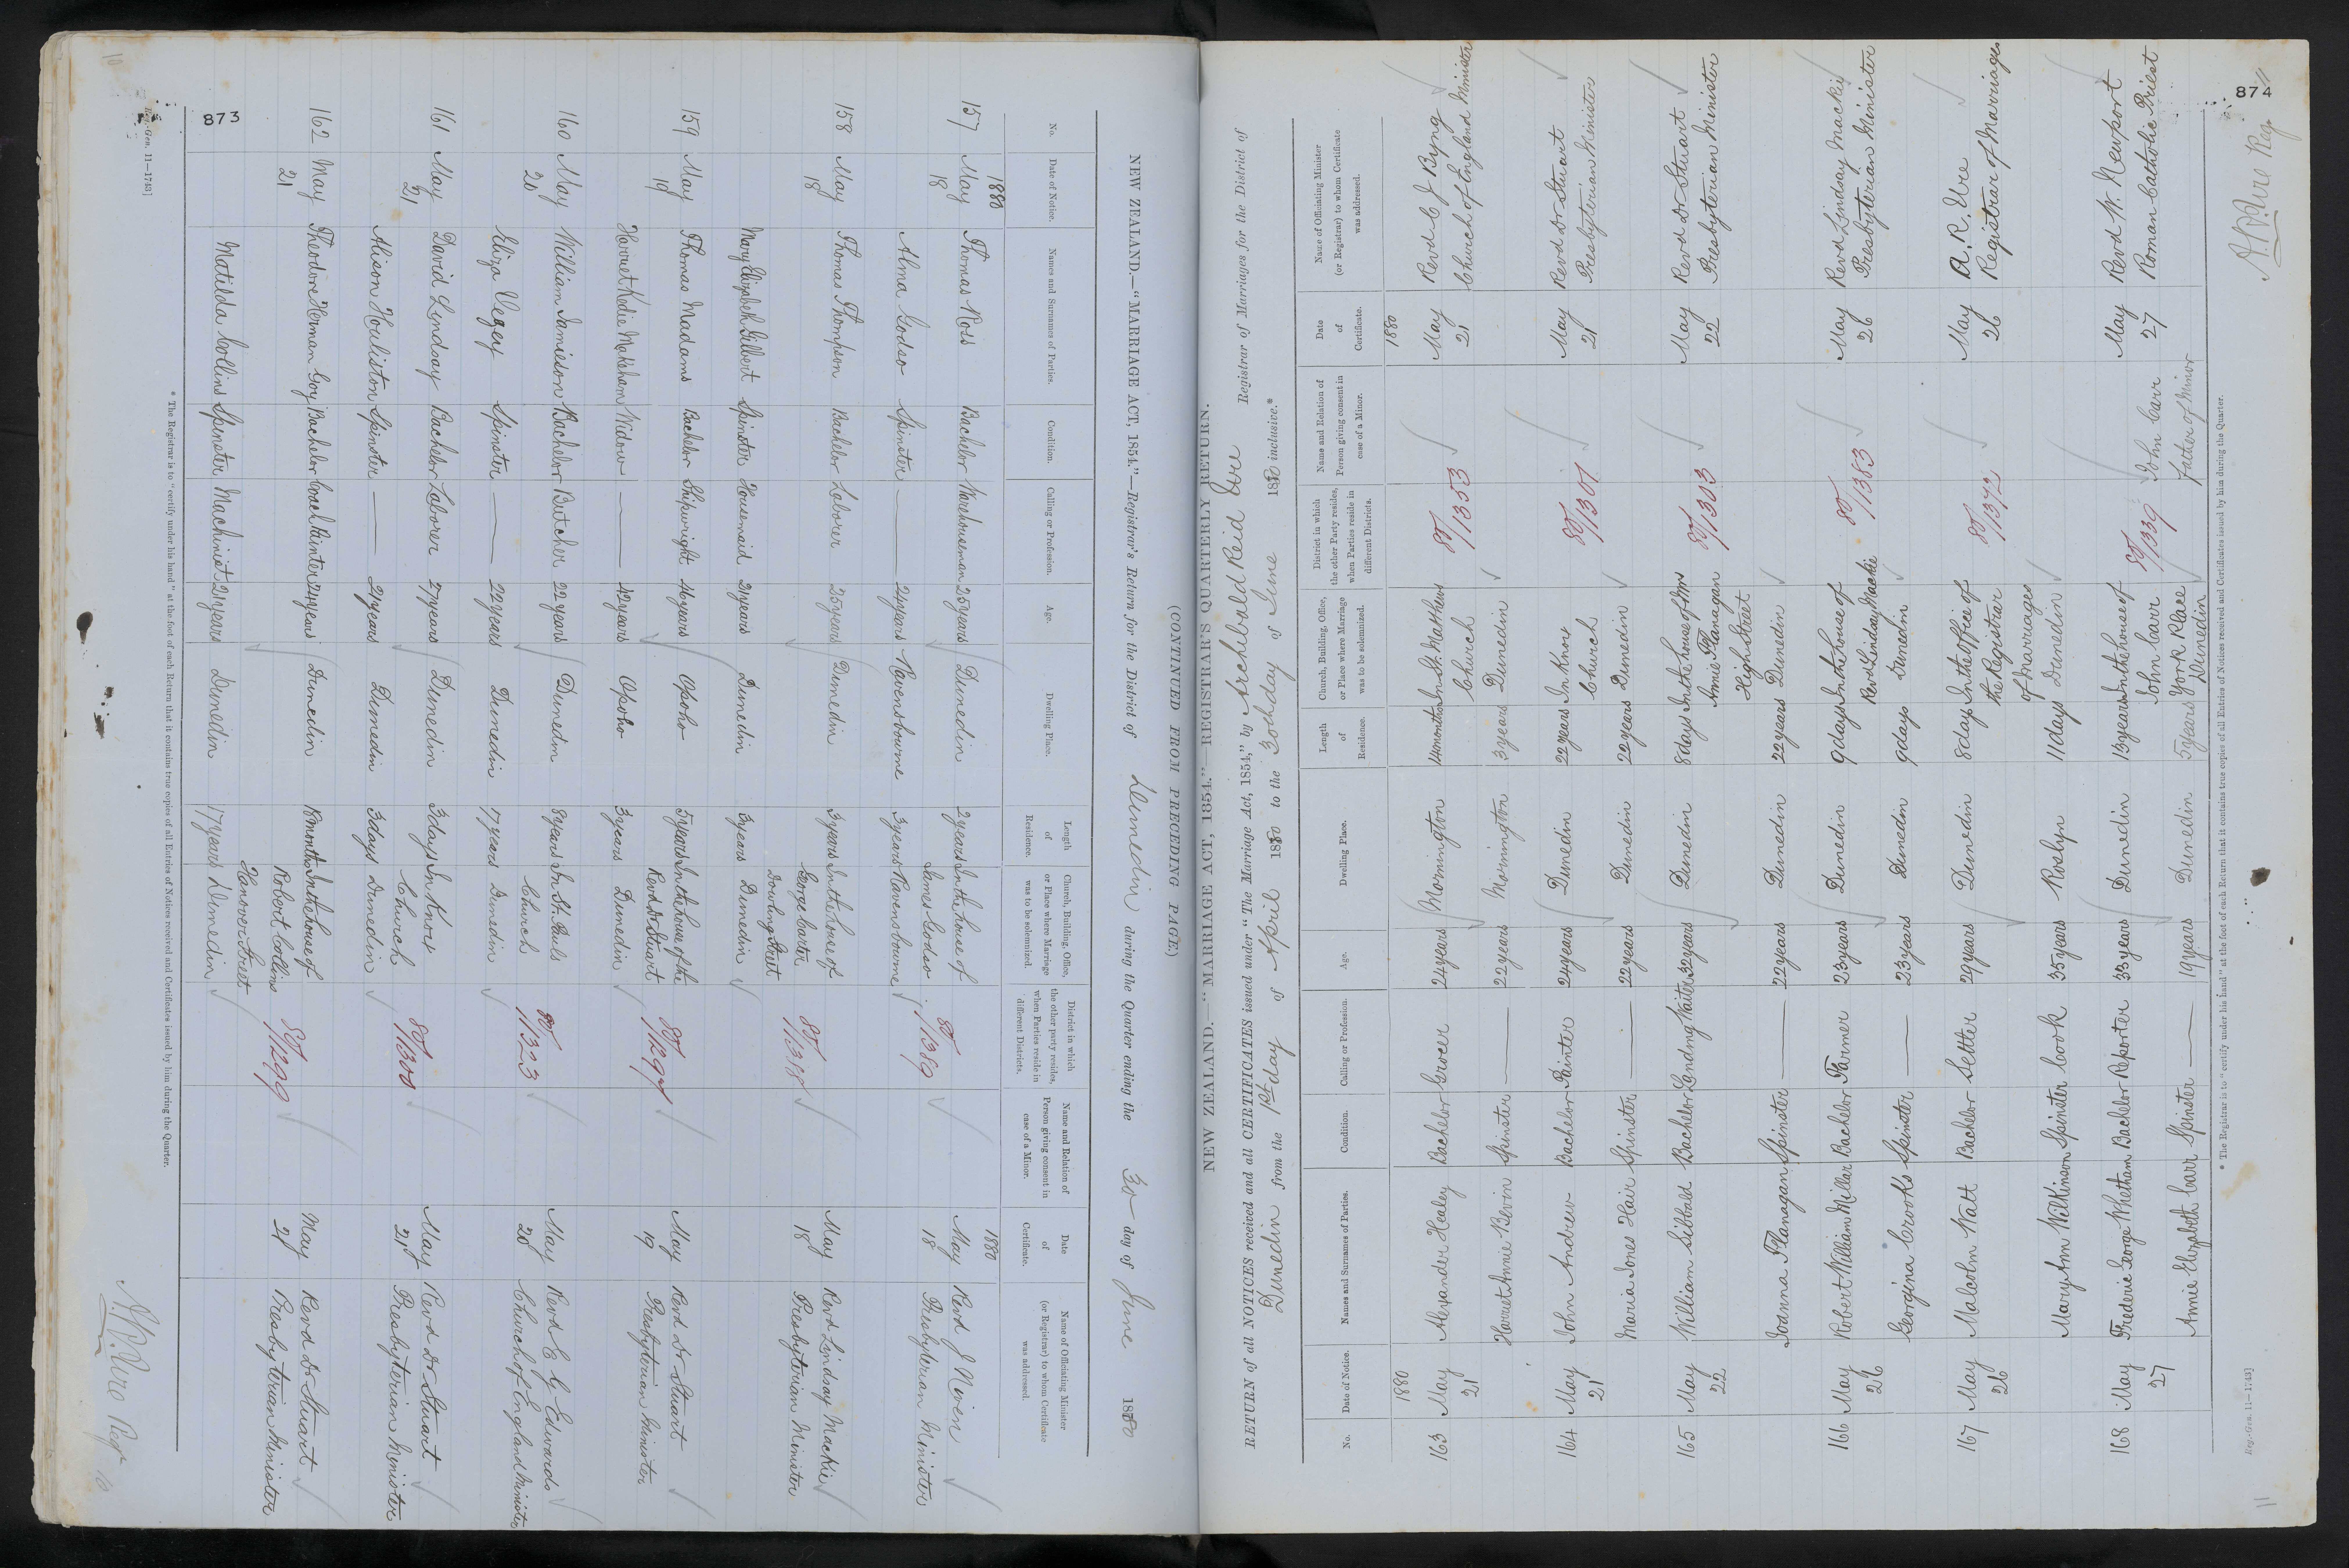 873
NEW ZEALAND.—"MARRIAGE ACT, 1854."—Registrar's Return for the District of Dunedin during the Quarter ending the 30 day of June 1880
(CONTINUED FROM PRECEDING PAGE.)
No. Date of Notice. Names and Surnames of Parties. Condition. Calling or Profession. Age. Dwelling Place. Length of Residence. Church, Building, Office, or Place where Marriage was to be solemnized. District in which the other party resides, when Parties reside in different Districts. Name and Relation of Person giving consent in case of a Minor. Date of Certificate. Name of Officiating Minister (or Registrar) to whom Certificate was addressed.
1880 1880
157 May 18 Thomas Ross Bachelor Warehouseman 25 years Dunedin 2 years In the house of James Godso May 18 Revd J Niven Presbyterian Minister
Alma Godso Spinster — 24 years Ravensbourne 3 years Ravensbourne 80/1369
158 May 18 Thomas Thompson Bachelor Laborer 25 years Dunedin 3 years In the house of George Carter Dowling Street May 18 Revd Lindsay Mackie Presbyterian Minister
Mary Elizabeth Gilbert Spinster Housemaid 21 years Dunedin 3 years Dunedin
159 May 19 Thomas Madams Bachelor Shipwright 46 years Opoho 5 years In the house of the Revd Dr Stuart 80/1297 May 19 Revd Dr Stuart Presbyterian Minister
Harriet Widow — 42 years Opoho 3 years Dunedin
160 May 20 William Jamieson Bachelor Butcher 22 years Dunedin 8 years In St. Pauls Church 80/1323 May 20 Revd E G Edwards Church of England Minister
Eliza Vezey Spinster — 22 years Dunedin 17 years Dunedin
161 May 21 David Lindsay Bachelor Laborer 27 years Dunedin 3 days In Knox Church 80/1300 May 21 Revd Dr Stuart Presbyterian Minister
Alison Houliston Spinster — 21 years Dunedin 3 days Dunedin
162 May 21 Theodore Herman Goy Bachelor Coach Painter 24 years Dunedin 18 months In the house of Robert Collins Hanover Street 80/1299 May 21 Revd Dr Stuart Presbyterian Minister
Matilda Collins Spinster Machinist 21 years Dunedin 17 years Dunedin
* The Registrar is to "certify under his hand" at the foot of each Return that it contains true copies of all Entries of Notices received and Certificates issued by him during the Quarter.
Reg.-Gen. 11—1743]
A R Ure Regr
10
874
NEW ZEALAND.—"MARRIAGE ACT, 1854."—REGISTRAR'S QUARTERLY RETURN.
RETURN of all NOTICES received and all CERTIFICATES issued under "The Marriage Act, 1854," by Archibald Reid Ure Registrar of Marriages for the District of
Dunedin from the 1st day of April 1880 to the 30th day of June 1880 inclusive.*
No. Date of Notice. Names and Surnames of Parties. Condition. Calling or Profession. Age. Dwelling Place. Length of Residence. Church, Building, Office, or Place where Marriage was to be solemnized. District in which the other Party resides, when Parties reside in different Districts. Name and Relation of Person giving consent in case of a Minor. Date of Certificate. Name of Officiating Minister (or Registrar) to whom Certificate was addressed.
1880 1880
163 May 21 Alexander Healey Bachelor Grocer 24 years Mornington 14 months In St. Matthews Church 80/1353 May 21 Revd C J Byng Church of England Minister
Harriet Annie Bevin Spinster — 22 years Mornington 3 years Dunedin
164 May 21 John Andrew Bachelor Painter 24 years Dunedin 22 years In Knox Church 80/1301 May 21 Revd Dr Stuart Presbyterian Minister
Maria Jones Hair Spinster — 22 years Dunedin 22 years Dunedin
165 May 22 William Sibbald Bachelor Landing Waiter 32 years Dunedin 8 days In the house of Mrs Annie Flanagan High Street 80/1303 May 22 Revd Dr Stuart Presbyterian Minister
Joanna Flanagan Spinster — 22 years Dunedin 22 years Dunedin
166 May 26 Robert William Millar Bachelor Farmer 23 years Dunedin 9 days In the house of Revd Lindsay Mackie 80/1383 May 26 Revd Lindsay Mackie Presbyterian Minister
Georgina Crooks Spinster — 23 years Dunedin 9 days Dunedin
167 May 26 Malcolm Watt Bachelor Settler 29 years Dunedin 8 days In the Office of the Registrar of Marriages 80/1372 May 26 A. R. Ure Registrar of Marriages
Mary Ann Wilkinson Spinster Cook 35 years Roslyn 11 days Dunedin
168 May 27 Frederic George Whetham Bachelor Reporter 33 years Dunedin 13 years In the house of John Carr York Place 80/1339 John Carr Father of Minor May 27 Revd W. Newport Roman Catholic Priest
Annie Elizabeth Carr Spinster — 19 years Dunedin 5 years Dunedin
* The Registrar is to "certify under his hand" at the foot of each Return that it contains true copies of all Entries of Notices received and Certificates issued by him during the Quarter.
Reg.-Gen. 11—1743]
A R Ure Reg
11